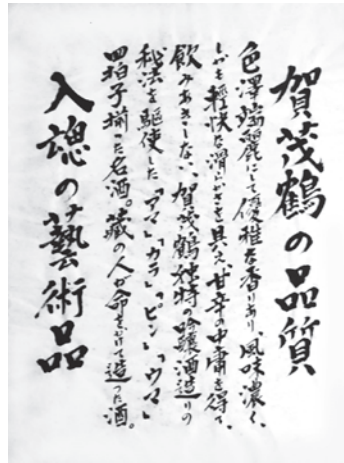 賀茂鶴の品質
色澤端麗にて優雅な香りあり、風味濃く、
しかも軽快な滑らかさを具え、甘辛の中庸を得て、
飲みあきしない、賀茂鶴独特の吟醸酒造りの
秘法を駆使した「アマ」「カラ」「ピン」「ウマ」
四拍子揃った名酒。蔵の人が命をかけて造った酒。
入魂の藝術品